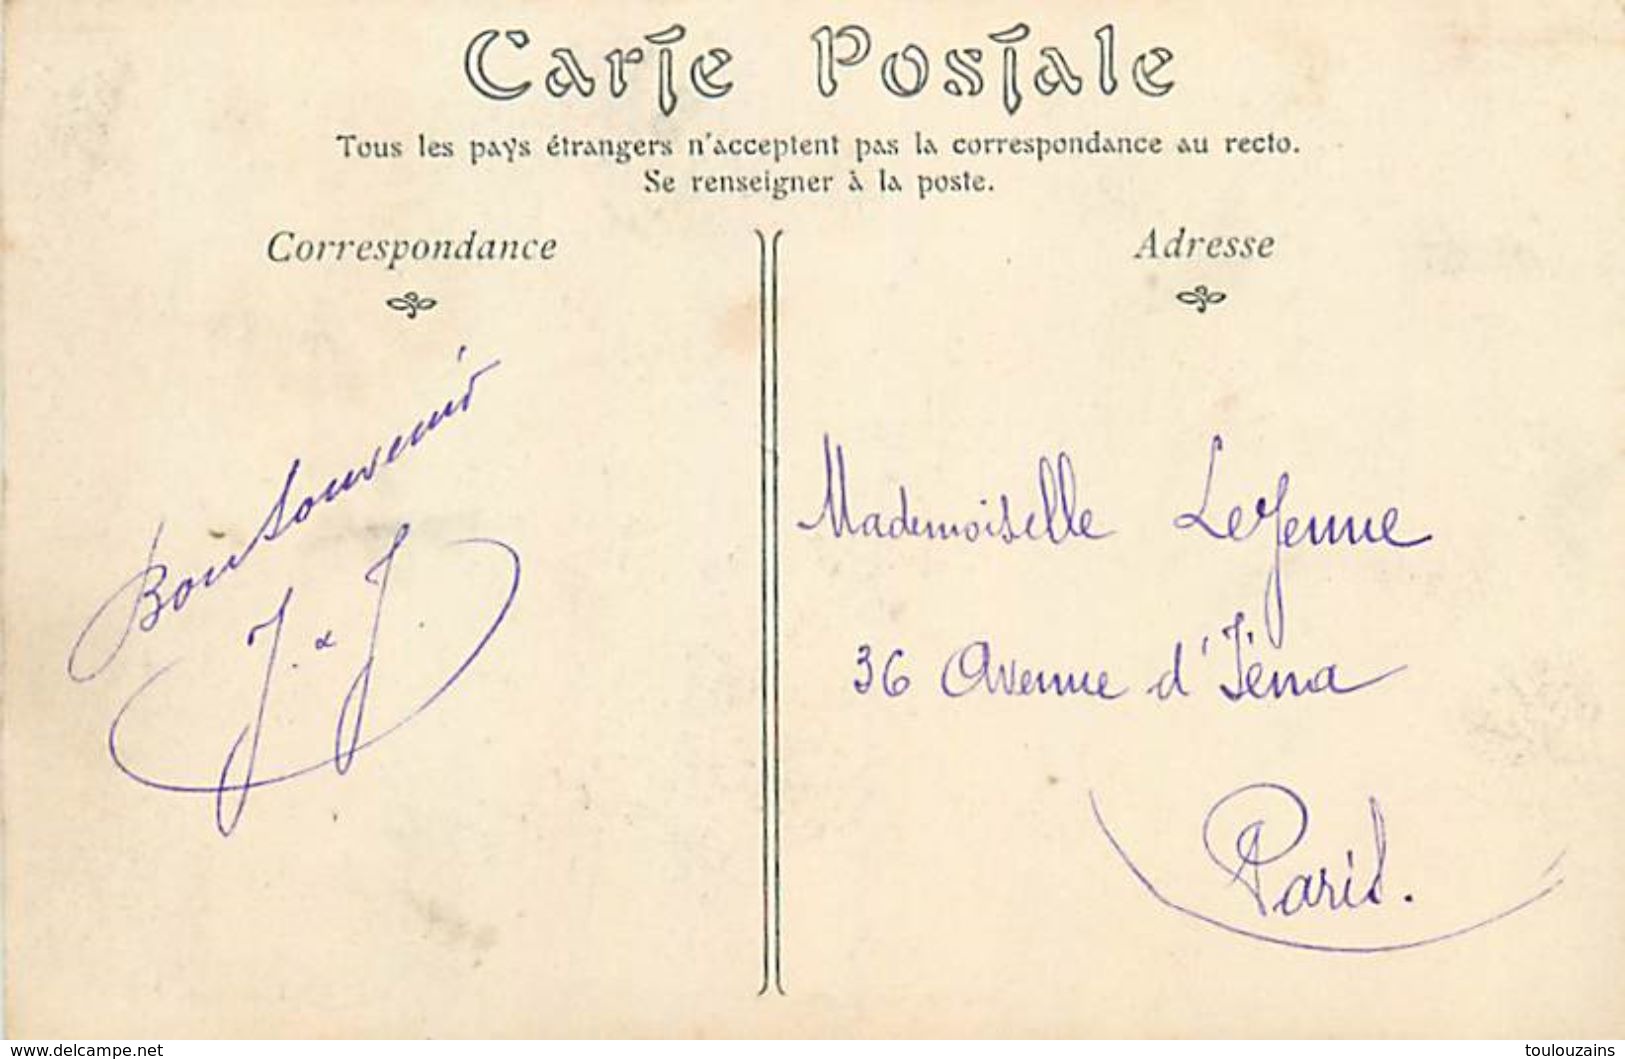 Carte Postale
Tous les pays étrangers n'acceptent pas la correspondance au recto.
Se renseigner à la poste.
Correspondance
Bon Souvenir
J. & J.
Adresse
Mademoiselle LeJeune
36 Avenue d'Iéna
Paris.
www.delcampe.net
toulouzains